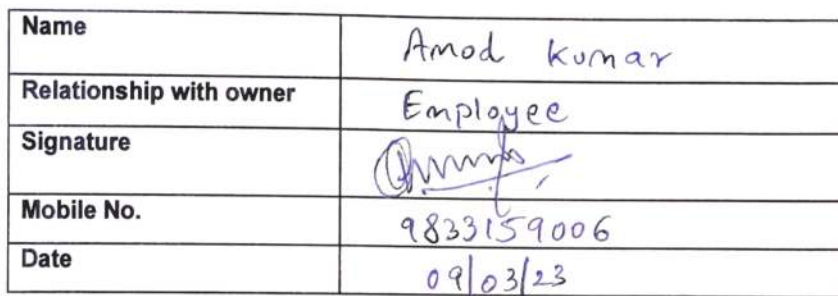 Name Amod Kumar
Relationship with owner Employee
Signature
Mobile No. 9833159006
Date 09/03/23